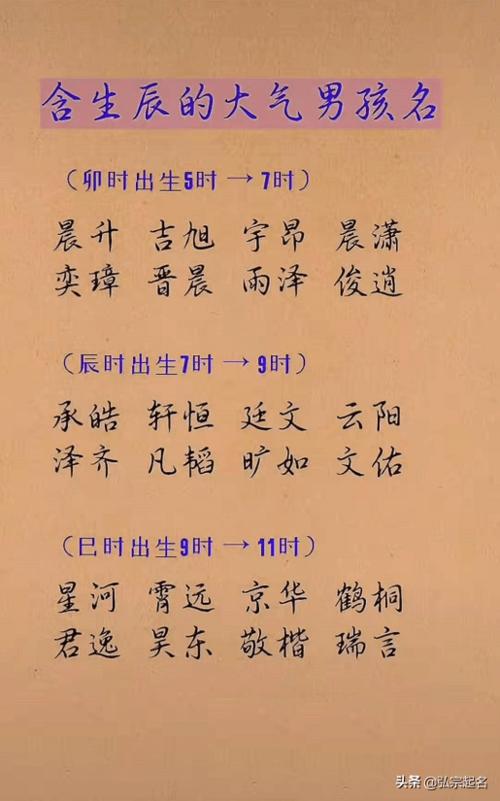 含生辰的大气男孩名
（卯时出生5时→7时）
晨升 吉旭 宇昂 晨潇
奕璋 晋晨 雨泽 俊逍
（辰时出生7时→9时）
承皓 轩恒 廷文 云阳
泽齐 凡韬 旷如 文佑
（巳时出生9时→11时）
星河 霄远 京华 鹤桐
君逸 昊东 敬楷 瑞言
头条 @弘宗起名